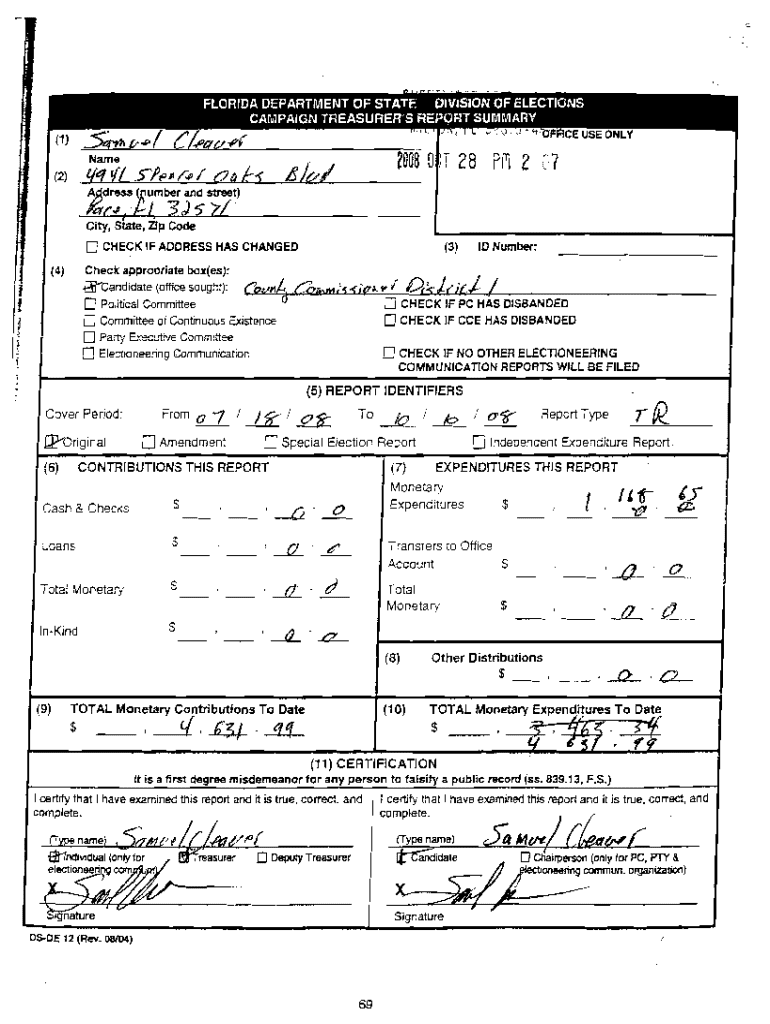 FLORIDA DEPARTMENT OF STATE DIVISION OF ELECTIONS
CAMPAIGN TREASURER'S REPORT SUMMARY
(1) Samuel Cleaver
Name
OFFICE USE ONLY
2008 OCT 28 PM 2
(2) 4941 Spencer Oaks Blvd
Address (number and street)
Pace, Fl 32571
City, State, Zip Code
CHECK IF ADDRESS HAS CHANGED
(3) ID Number:
(4) Check appropriate box(es):
Candidate (office sought): County Commissioner District 1
Political Committee
CHECK IF PC HAS DISBANDED
Committee of Continuous Existence
CHECK IF CCE HAS DISBANDED
Party Executive Committee
Electioneering Communication
CHECK IF NO OTHER ELECTIONEERING
COMMUNICATION REPORTS WILL BE FILED
(5) REPORT IDENTIFIERS
Cover Period: From 07 / 18 / 08 To 10 / / 08 Report Type TR
Original Amendment Special Election Report Independent Expenditure Report
(6) CONTRIBUTIONS THIS REPORT
Cash & Checks $ 0 . 0
Loans $ 0 . 0
Total Monetary $ 0 . 0
In-Kind $ 0 . 0
(7) EXPENDITURES THIS REPORT
Monetary
Expenditures $ 1 , 168 . 65
Transfers to Office
Account $ 0 . 0
Total
Monetary $ 0 . 0
(8) Other Distributions
$ 0 . 0
(9) TOTAL Monetary Contributions To Date
$ 4 , 631 . 99
(10) TOTAL Monetary Expenditures To Date
$ 3 , 463 . 34
4 631 . 99
(11) CERTIFICATION
It is a first degree misdemeanor for any person to falsify a public record (ss. 839.13, F.S.)
I certify that I have examined this report and it is true, correct, and
complete.
(Type name) Samuel Cleaver
Individual (only for
electioneering commun.)
Treasurer Deputy Treasurer
X
Signature
I certify that I have examined this report and it is true, correct, and
complete.
(Type name) Samuel Cleaver
Candidate Chairperson (only for PC, PTY &
electioneering commun. organization)
X
Signature
DS-DE 12 (Rev. 08/04)
69